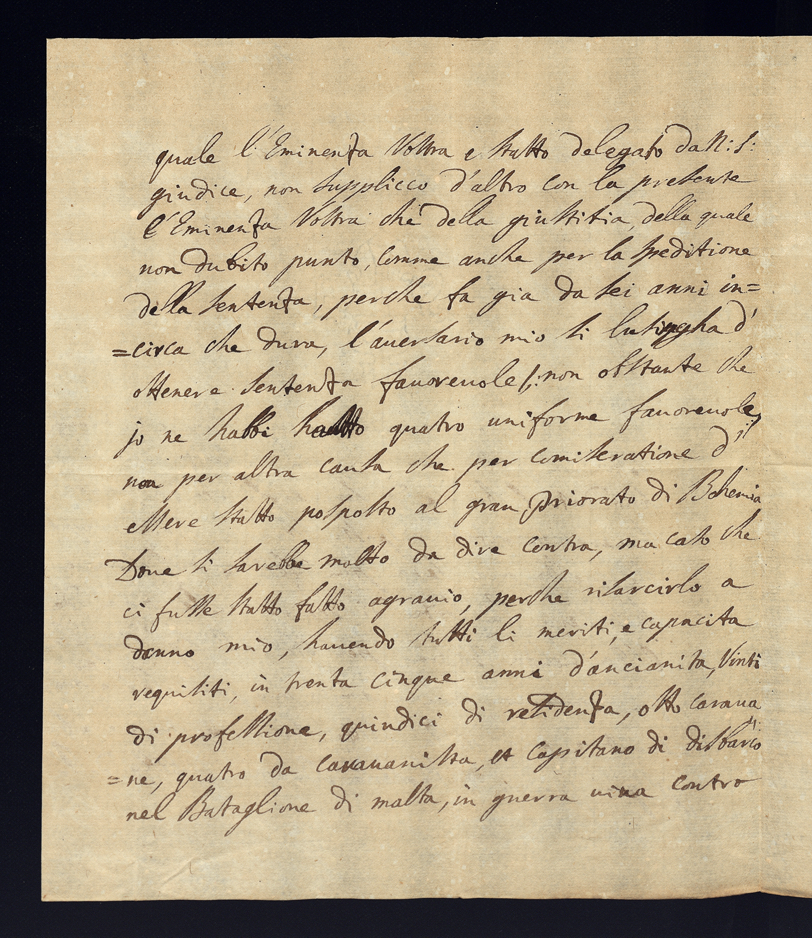 quale l'Eminenza Vostra e statto delegato da N: S:
giudice, non supplicco d'altro con la presente
l'Eminenza Vostra che della giustitia, della quale
non dubito punto, comme anche per la speditione
della sentenza, perche fa gia da sei anni in=
=circa che dura, l'aversario mio si lusingha d'
ottenere sentenza favorevole /: non osstante che
jo ne habbi hautto quatro uniforme favorevole,
non per altra causa che per comiseratione d'
essere statto posposto al gran Priorato di Bohemia
Dove si sarebbe molto da dire contra, ma caso che
ci fusse statto fatto agravio, perche risarcirlo a
danno mio, havendo tutti li meriti, e capacita
requisiti, in trenta cinque anni d'ancianita, Vinti
di professione, quindici di residenza, otto carava
=ne, quatro da caravanista, et capitano di disbarco
nel Bataglione di malta, in guerra viva contro